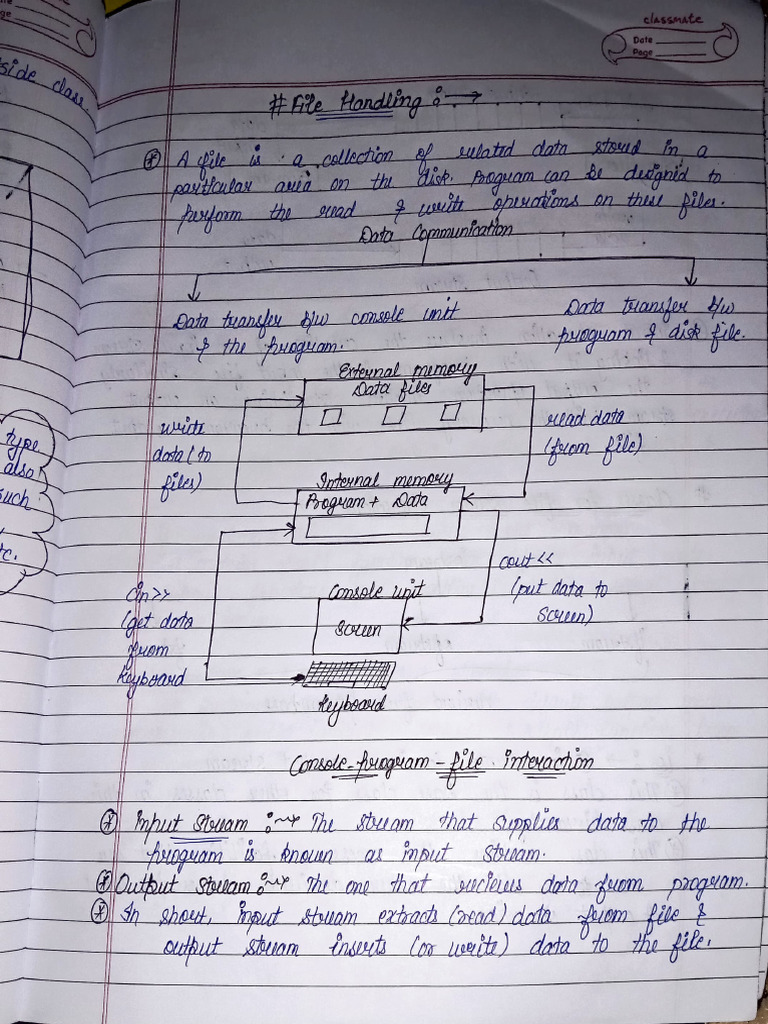 classmate
Date
Page
side class.
# File Handling :→
* A file is a collection of related data stored in a
particular area on the disk. Program can be designed to
perform the read & write operations on these files.
Data Communication
Data transfer b/w console unit
& the program.
Data transfer b/w
program & disk file.
External memory
Data files
write
data (to
files)
read data
(from file)
Internal memory
Program + Data
cout<<
(put data to
screen)
Console unit
Screen
cin>>
(get data
from
keyboard
Keyboard
type
also
such
tc.
Console-program-file interaction
* Input Stream :⇝ The stream that supplies data to the
program is known as input stream.
* Output stream :⇝ The one that recieves data from program.
* In short, input stream extracts (read) data from file &
output stream inserts (or write) data to the file.